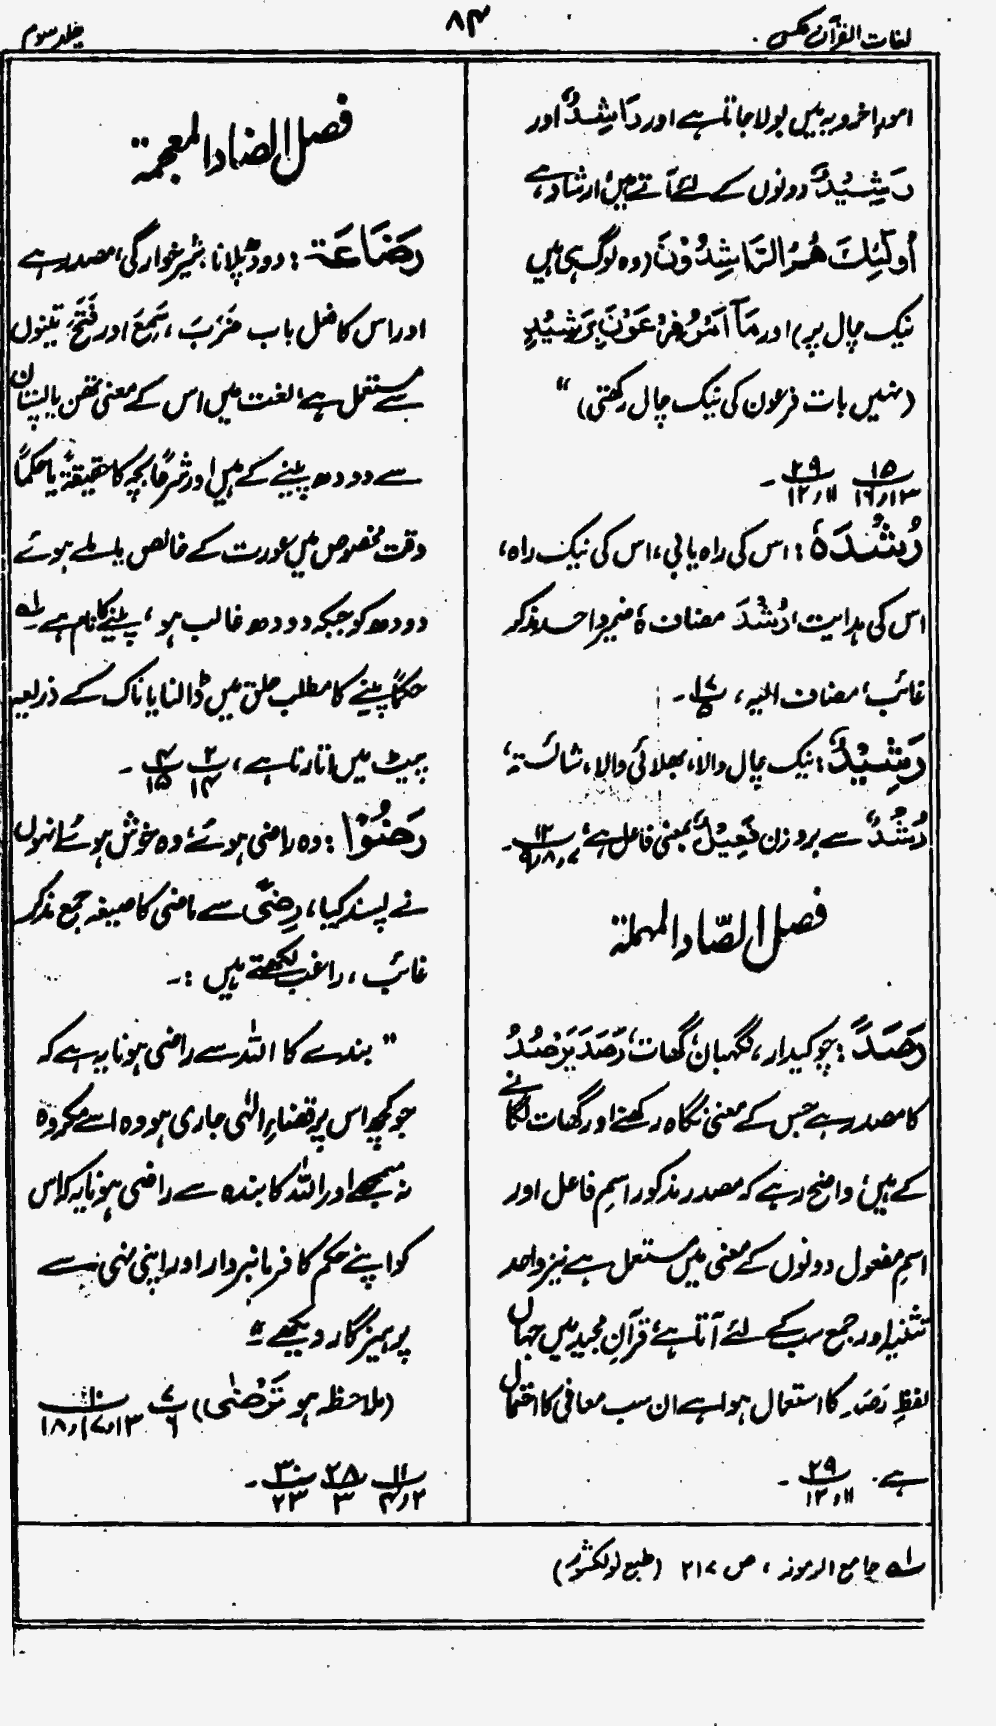 لغات القرآن مکمل
۸۴
جلد سوم
امورِ اخرویہ میں بولا جاتا ہے اور رَاشِدٌ اور
رَشِیْدٌ دونوں کے لئے آتے ہیں ارشاد ہے،
اُولٰٓئِكَ هُمُ الرَّاشِدُوْنَ (وہ لوگ ہی ہیں
نیک چال پر) اور مَآ اَمْرُ فِرْعَوْنَ بِرَشِيْدٍ
(نہیں بات فرعون کی نیک چال رکھتی)“
۱۵/۱۶٫۱۳ ۲۹/۱۲٫۱۱ ۔
رُشْدَهٗ : اس کی راہ یابی، اس کی نیک راہ،
اس کی ہدایت، رُشْدَ مضاف ہٗ ضمیر واحد مذکر
غائب، مضاف الیہ، ۱۷/۵ ۔
رَشِيْدٌ : نیک چال والا، بھلائی والا، شائستہ،
رُشْدٌ سے بروزن فَعِیْلٌ بمعنی فاعل ہے، ۱۲/۹٫۸٫۷ ۔
فصل الصّاد المہملۃ
رَصَدًا : چوکیدار، نگہبان، گھات، رَصَدَ یَرْصُدُ
کا مصدر ہے جس کے معنی نگاہ رکھنے اور گھات لگانے
کے ہیں، واضح رہے کہ مصدر مذکور اسمِ فاعل اور
اسمِ مفعول دونوں کے معنی میں مستعمل ہے نیز واحد
تثنیہ اور جمع سب کے لئے آتا ہے، قرآن مجید میں جہاں
لفظِ رَصَد کا استعمال ہوا ہے ان سب معافی کا احتمال
ہے۔ ۲۹/۱۲٫۱۱ ۔
فصل الضاد المعجمۃ
رَضَاعَۃ : دودھ پلانا، شیر خوارگی، مصدر ہے
اور اس کا فعل باب ضَرَبَ، سَمِعَ اور فَتَحَ تینوں
سے مستعمل ہے، لغت میں اس کے معنی تھن یا پستان
سے دودھ پینے کے ہیں اور شرعًا بچہ کا حقیقۃً یا حکمًا
وقت مخصوص میں عورت کے خالص یا ملے ہوئے
دودھ کو جبکہ دودھ غالب ہو، پینے کا نام ہے ۱ھ
حکمًا پینے کا مطلب حلق میں ڈالنا یا ناک کے ذریعہ
پیٹ میں اتارنا ہے، ۲/۱۴ ۴/۱۵ ۔
رَضُوْا : وہ راضی ہوئے، وہ خوش ہوئے انہوں
نے پسند کیا، رِضًی سے ماضی کا صیغہ جمع مذکر
غائب، راغب لکھتے ہیں :۔
” بندے کا اللہ سے راضی ہونا یہ ہے کہ
جو کچھ اس پر قضاءِ الٰہی جاری ہو وہ اسے مکروہ
نہ سمجھے اور اللہ کا بندہ سے راضی ہونا یہ کہ اس
کو اپنے حکم کا فرمانبردار اور اپنی نہی سے
پرہیزگار دیکھے“
(ملاحظہ ہو تَرْضٰی) ۷/۶ ۱۰/۱۸٫۱۷٫۱۳
۱۱/۴٫۲ ۲۸/۳ ۳۰/۲۳ ۔
۱ھ جامع الرموز، ص ۲۱۷ (طبع نولکشور)